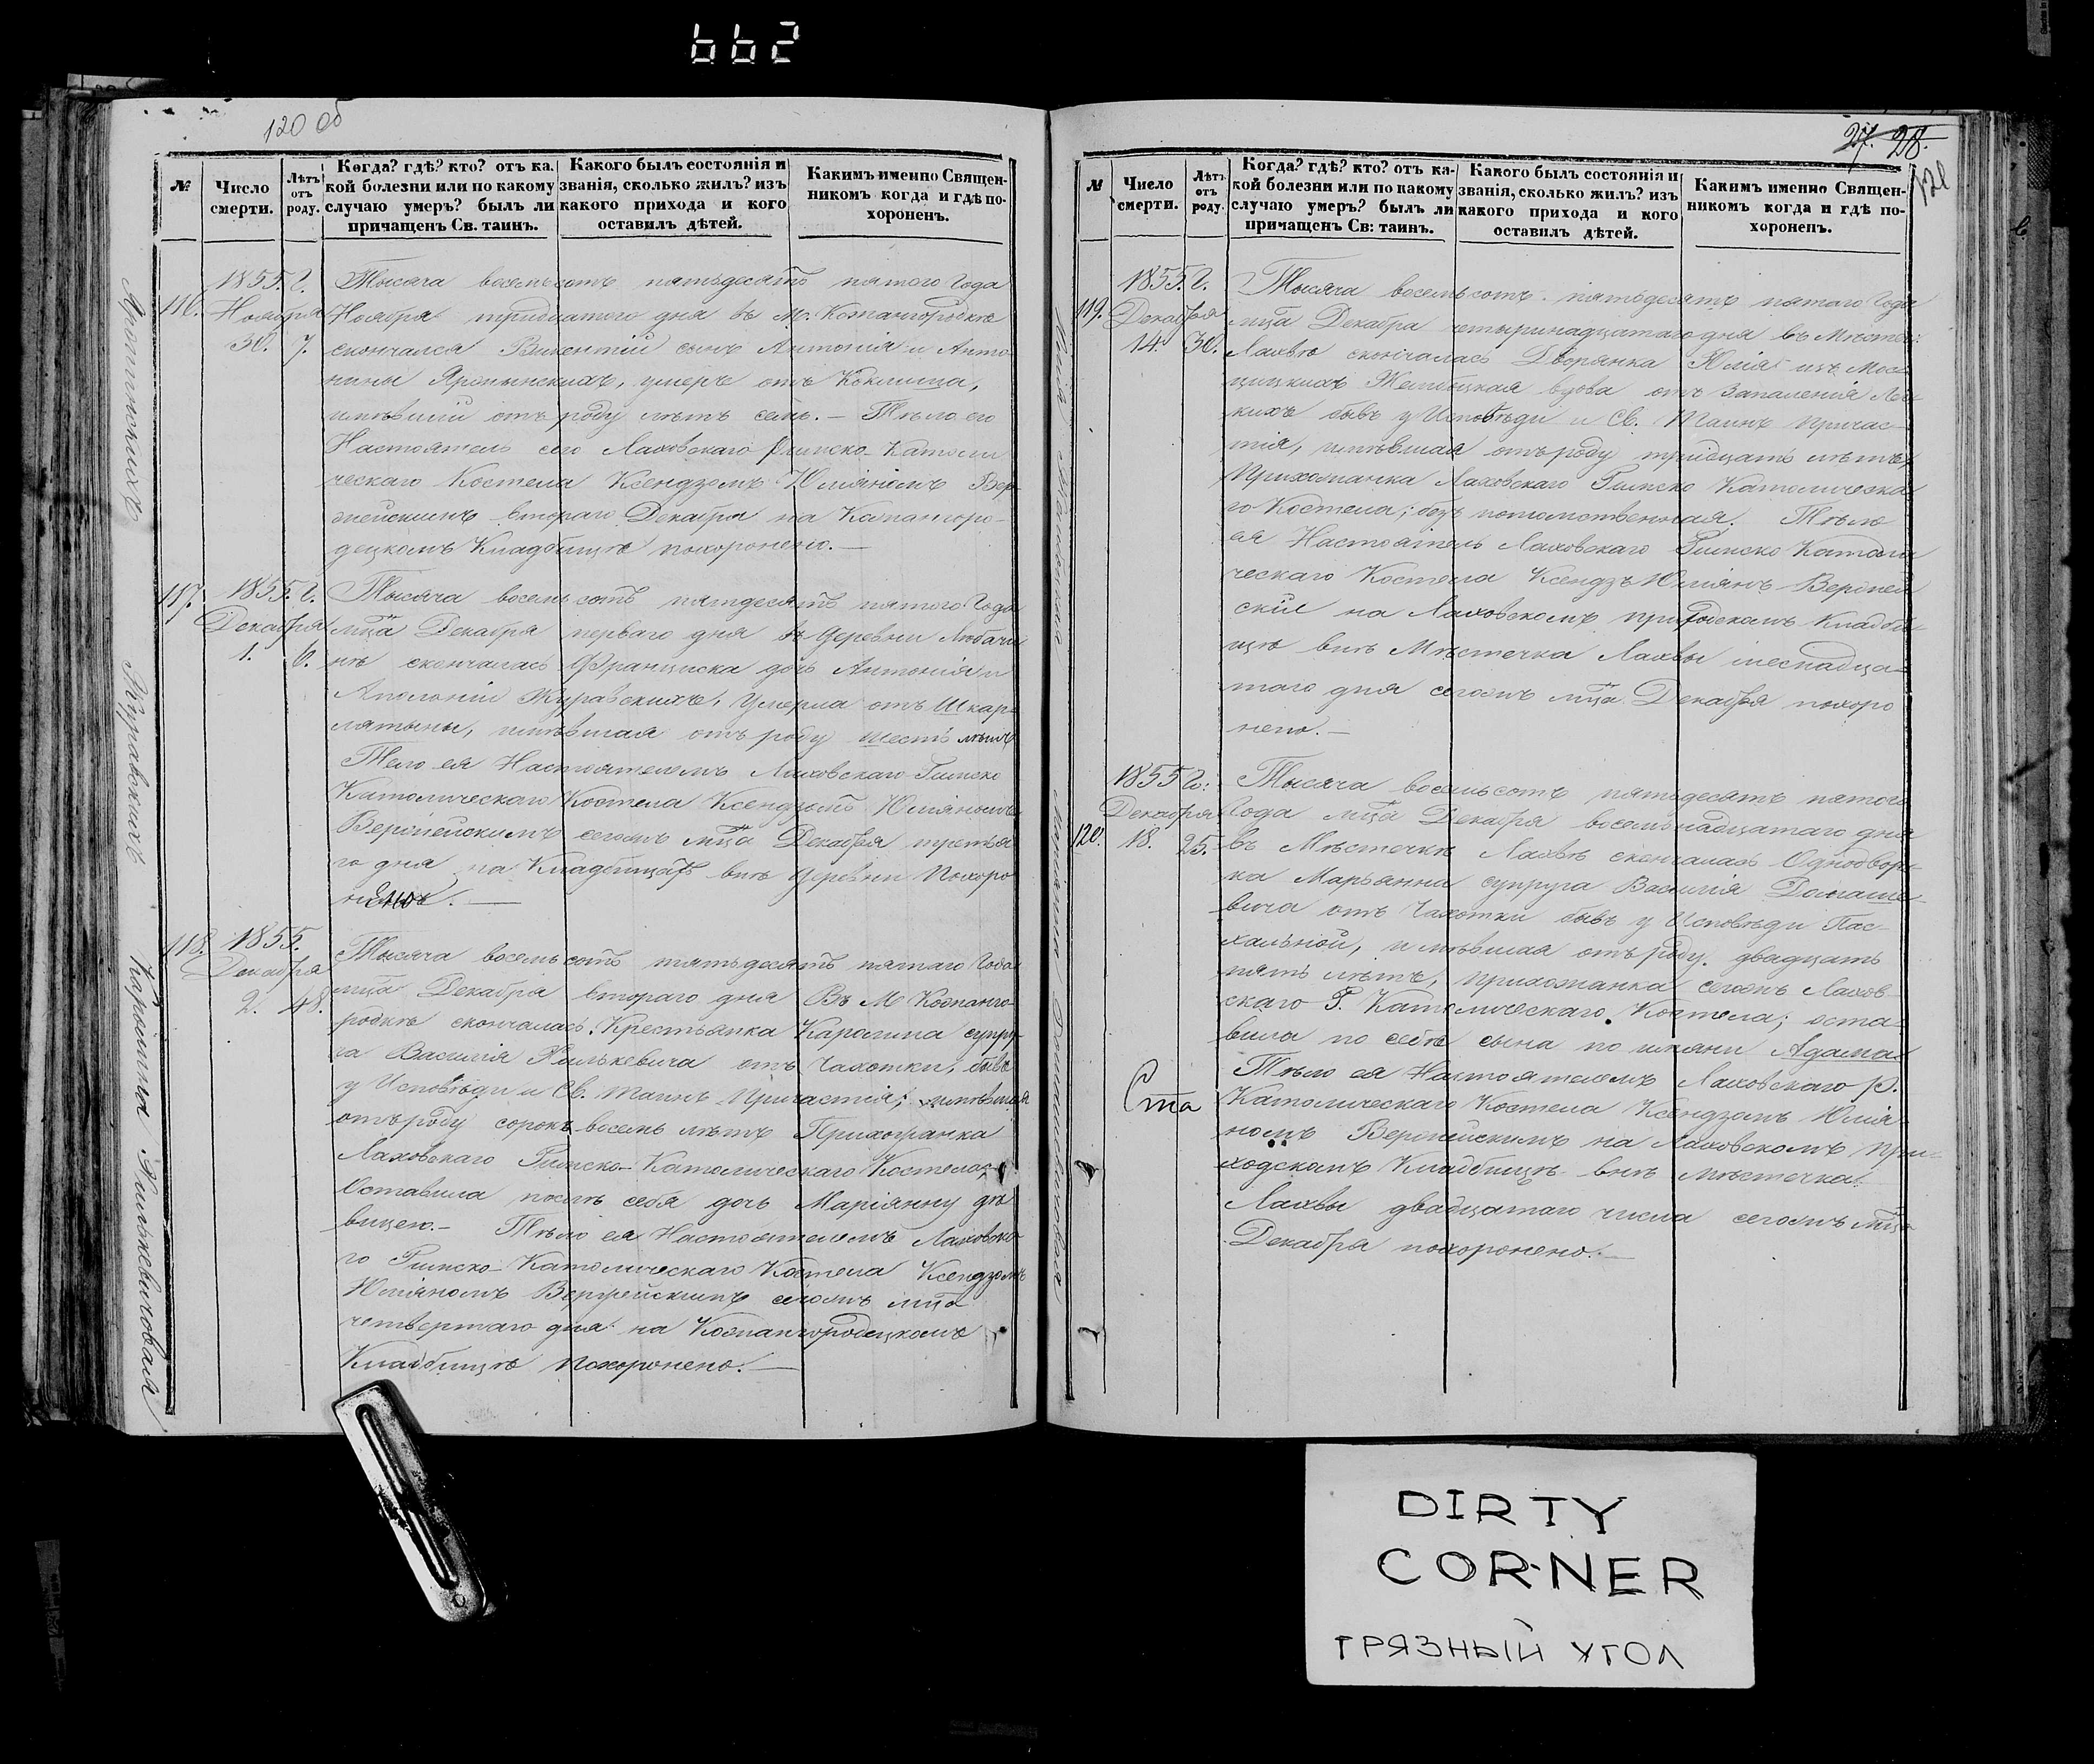 662
120 об
№
Число смерти.
Лѣтъ отъ роду.
Когда? гдѣ? кто? отъ ка-
кой болезни или по какому
случаю умеръ? былъ ли
причащенъ Св. таинъ.
Какого былъ состоянія и
званія, сколько жилъ? изъ
какого прихода и кого
оставилъ дѣтей.
Какимъ именно Священ-
никомъ когда и гдѣ по-
хороненъ.
116.
1855. г.
Ноября
30. 7.
Тысяча восемьсотъ пятьдесятъ пятого Года
Ноября тридцатого дня въ М. Кожангородкѣ
скончался Викентій сынъ Антонія и Анто
нины Яротынскихъ, умеръ отъ Коклюша,
имѣвшій отъ роду лѣтъ семь. — Тѣло его
Настоятель сего Лаховскаго Римско-Католи
ческаго Костела Ксендзомъ Юліяномъ Вер-
пейскимъ втораго Декабря на Кожангоро-
децкомъ Кладбищѣ похоронено. —
117.
1855. г.
Декабря
1. 6.
Тысяча восемьсотъ пятдесятъ пятого Года
мца Декабря перваго дня въ деревни Любачи
нѣ скончалась Франциска дочь Антонія и
Аполоніи Журавскихъ, умерла отъ Шкар-
лятыны, имѣвшая отъ роду шесть лѣтъ
Тело ея Настоятелемъ Лаховскаго Римско
Католическаго Костела Ксендзомъ Юліяномъ
Верпейскимъ сегожъ мца Декабря третья
го дня на Кладбищѣ внѣ деревни Похоро
нено. —
Журавскихъ
118.
1855.
Декабря
2. 48.
Тысяча восемьсотъ пятьдесятъ пятаго Года
мца Декабря втораго дня Въ М Кожанго-
родкѣ скончалась Крестьянка Каролина супру
га Василія Хилькевича отъ Чахотки, бывъ
у Исповѣди и Св. Таинъ Причастія; имѣвшая
отъ роду сорокъ восемь лѣтъ Прихожанка
Лаховскаго Римско-Католическаго Костела;
Оставила послѣ себя дочь Маріянну дѣ
вицею. — Тѣло ея Настоятелемъ Лаховска-
го Римско-Католическаго Костела Ксендзомъ
Юліяномъ Верпейскимъ сегожъ мца
четвертаго дня на Кожангородецкомъ
Кладбищѣ Похоронено. —
Каролина Хилькевичовая
27. 28.
121
№
Число смерти.
Лѣтъ отъ роду.
Когда? гдѣ? кто? отъ ка-
кой болезни или по какому
случаю умеръ? былъ ли
причащенъ Св: таинъ.
Какого былъ состоянія и
званія, сколько жилъ? изъ
какого прихода и кого
оставилъ дѣтей.
Какимъ именно Священ-
никомъ когда и гдѣ по-
хороненъ.
119.
1855. г.
Декабря
14. 30.
Тысяча восемьсотъ пятьдесятъ пятаго Года
мца Декабря четыринадцатаго дня въ Мѣстеч:
Лахвѣ скончалась Дворянка Юлія изъ
вдова отъ Запаленія Лег-
кихъ бывъ у Исповѣди и Св. Таинъ Причас-
тія, имѣвшая отъ роду тридцать лѣтъ,
Прихожанка Лаховскаго Римско Католическа
го Костела; безъ потомственная. Тѣло
ея Настоятель Лаховскаго Римско Католи
ческаго Костела Ксендзъ Юліянъ Верпей
скій на Лаховскомъ приходскомъ Кладби-
щѣ внѣ Мѣстечка Лахвы шеснадца-
таго дня сегожъ мца Декабря похоро
нено. —
120.
1855 г.
Декабря
18. 25.
Тысяча восемьсотъ пятьдесятъ пятого
Года мца Декабря восемьнадцатаго дня
въ Мѣстечкѣ Лахвѣ скончалась Однодвор-
ка Марьянна супруга Василія Домаше-
вича отъ Чахотки бывъ у Исповѣди Пас-
хальной, имѣвшая отъ роду двадцать
пять лѣтъ, прихожанка сегожъ Лахов-
скаго Р. Католическаго Костела; оста-
вила по себѣ сына по имяни Адама.
Тѣло ея Настоятелемъ Лаховскаго Р.
Католическаго Костела Ксендзомъ Юлія-
номъ Верпейскимъ на Лаховскомъ При-
ходскомъ Кладбищѣ внѣ мѣстечка
Лахвы двадцатаго числа сегожъ мца
Декабря похоронено. —
Ста
DIRTY
CORNER
ГРЯЗНЫЙ УГОЛ